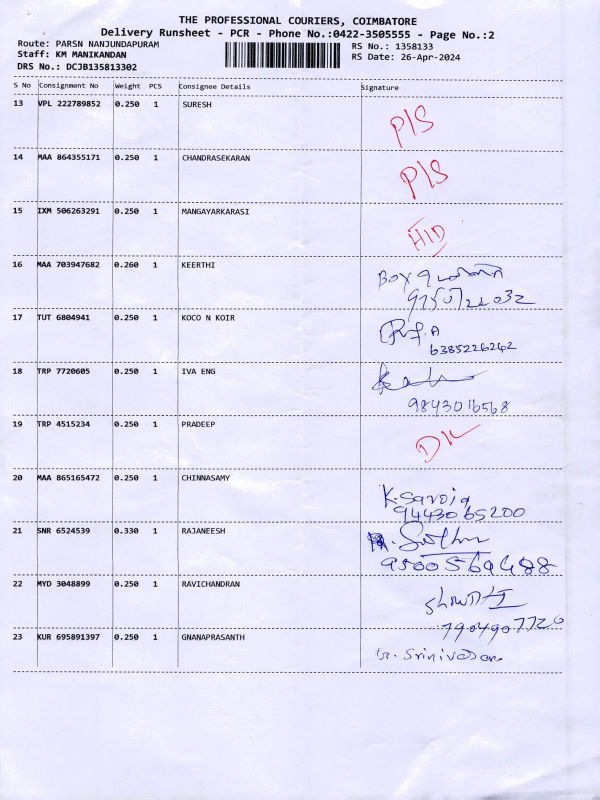 THE PROFESSIONAL COURIERS, COIMBATORE
Delivery Runsheet - PCR - Phone No.:0422-3505555 - Page No.:2
Route: PARSN NANJUNDAPURAM
RS No.: 1358133
Staff: KM MANIKANDAN
RS Date: 26-Apr-2024
DRS No.: DCJB135813302
S No Consignment No Weight PCS Consignee Details Signature
13 VPL 222789852 0.250 1 SURESH
P/S
14 MAA 864355171 0.250 1 CHANDRASEKARAN
P/S
15 IXM 506263291 0.250 1 MANGAYARKARASI
H/D
16 MAA 703947682 0.260 1 KEERTHI
BOX
17 TUT 6804941 0.250 1 KOCO N KOIR
6385226242
18 TRP 7720605 0.250 1 IVA ENG
9843016568
19 TRP 4515234 0.250 1 PRADEEP
20 MAA 865165472 0.250 1 CHINNASAMY
K. Saroja
9443065200
21 SNR 6524539 0.330 1 RAJANEESH
9500569488
22 MYD 3048899 0.250 1 RAVICHANDRAN
7904907720
23 KUR 695891397 0.250 1 GNANAPRASANTH
Srinivasan